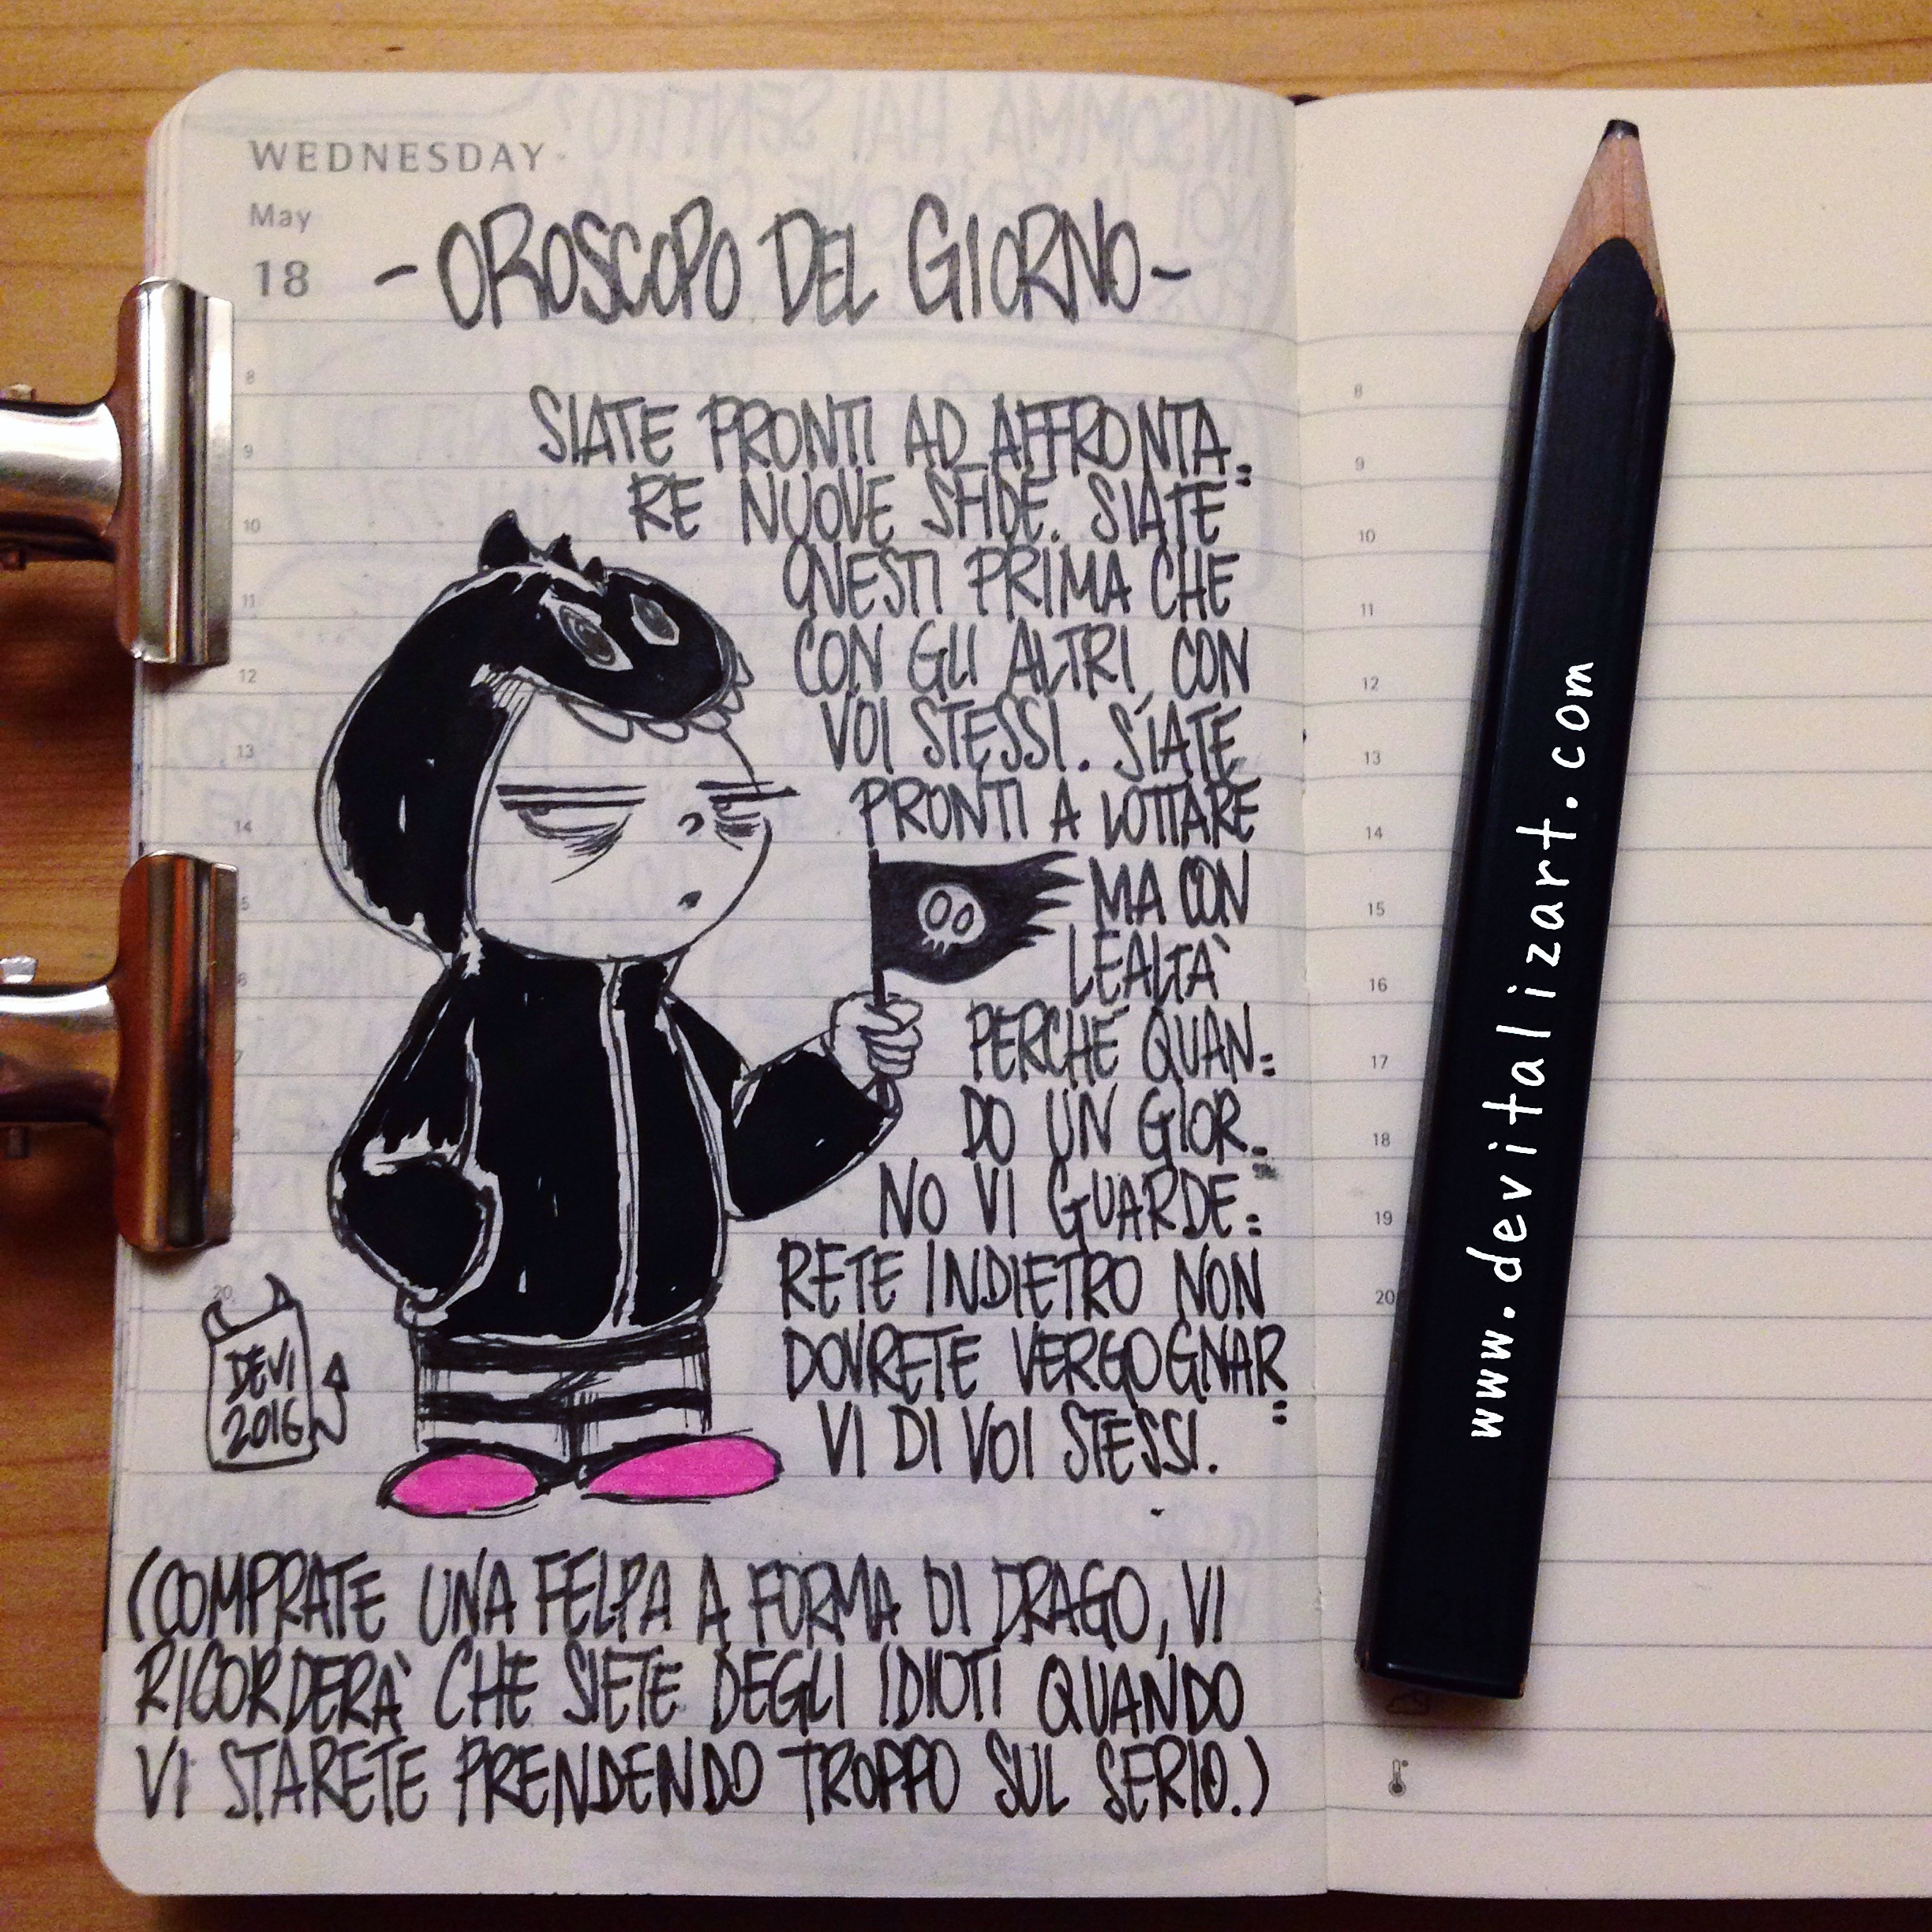 WEDNESDAY
May
18
- OROSCOPO DEL GIORNO -
SIATE PRONTI AD AFFRONTA=
RE NUOVE SFIDE. SIATE
ONESTI PRIMA CHE
CON GLI ALTRI, CON
VOI STESSI. SIATE
PRONTI A LOTTARE
MA CON
LEALTÀ
PERCHÉ QUAN=
DO UN GIOR=
NO VI GUARDE=
RETE INDIETRO NON
DOVRETE VERGOGNAR=
VI DI VOI STESSI.
DEVI
2016
(COMPRATE UNA FELPA A FORMA DI DRAGO, VI
RICORDERÀ CHE SIETE DEGLI IDIOTI QUANDO
VI STARETE PRENDENDO TROPPO SUL SERIO.)
8
9
10
11
12
13
14
15
16
17
18
19
20
www.devitalizart.com